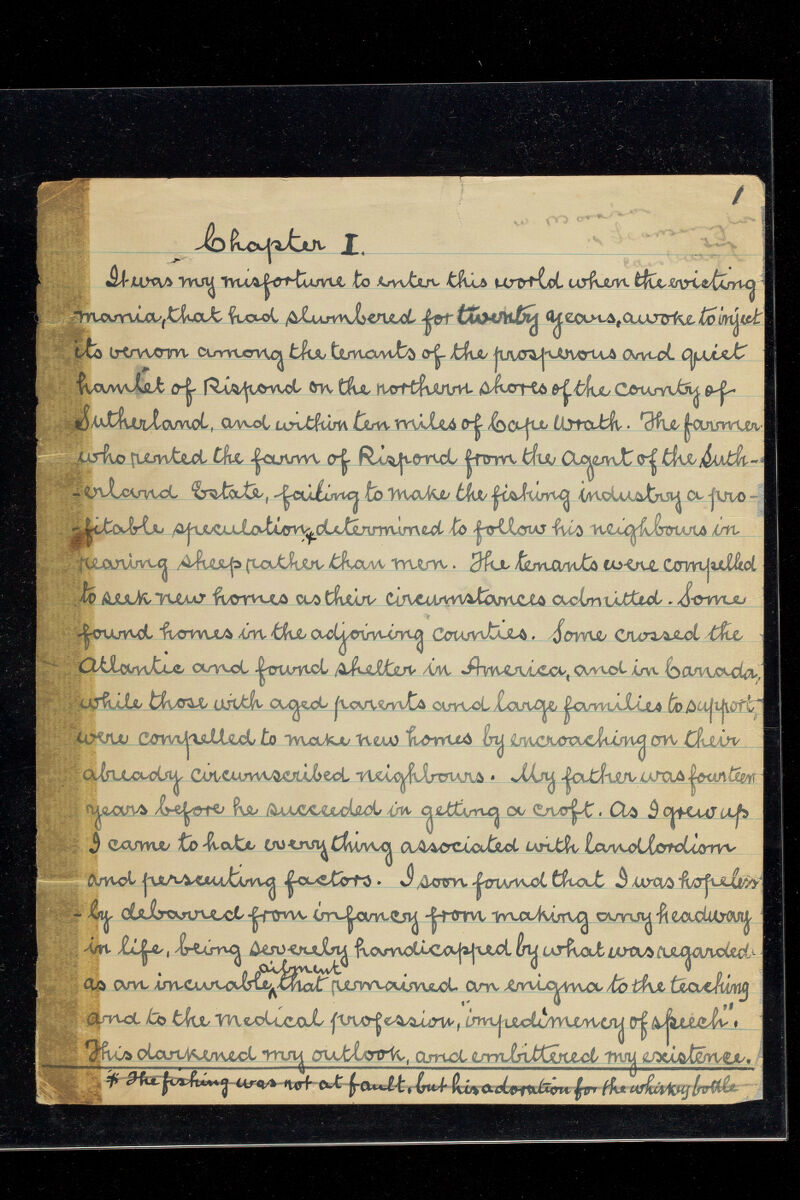 1
Chapter I.
It was my misfortune to enter this world when the evicting
mania, that had slumbered for twenty years, awoke to inject
its venom among the tenants of the prosperous and quiet
hamlet of Rispond on the northern shores of the county of
Sutherland, and within ten miles of Cape Wrath. The farmer
who rented the farm of Rispond from the Agent of the Suth-
-erland Estate, failing to make the fishing industry a pro-
-fitable speculation,* determined to follow his neighbours in
rearing sheep rather than men. The tenants were compelled
to seek new homes as their circumstances admitted. Some
found homes in the adjoining counties. Some crossed the
Atlantic and found shelter in America, and in Canada,
while those with aged parents and large families to support,
were compelled to make new homes by encroaching on their
already circumscribed neighbours. My father was fourteen
years before he succeeded in getting a croft. As I grew up
I came to hate everything associated with landlordism
and persecuting factors. I soon found that I was hopeless
-ly debarred from infancy from making any headway
in life, being severely handicapped by what was regarded
as an incurable ailment that remained an enigma to the teaching
and to the medical profession, "impedimency of speech".
This darkened my outlook, and embittered my existence.
* The fishing was not at fault, but his adoration for the whisky bottle